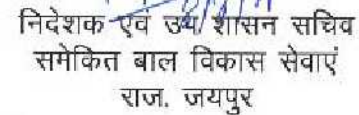 निदेशक एवं उप शासन सचिव
समेकित बाल विकास सेवाएं
राज. जयपुर